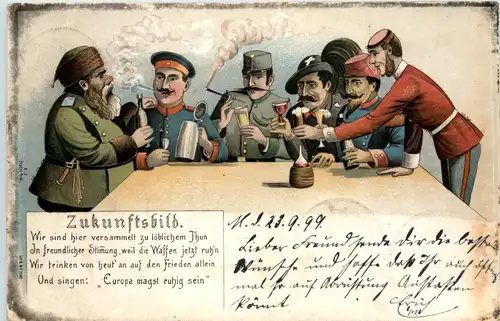 Zukunftsbild.
Wir sind hier versammelt zu löblichem Thun
In freundlicher Stimung, weil die Waffen jetzt ruh'n
Wir trinken von heut' an auf den Frieden allein
Und singen: "Europa magst ruhig sein"
M. d. 23.9.99.
Lieber Freund sende dir die besten
Wünsche und hoffe daß Ihr auch
mal so auf Abrüstung Anstoßen
könnt
Erich